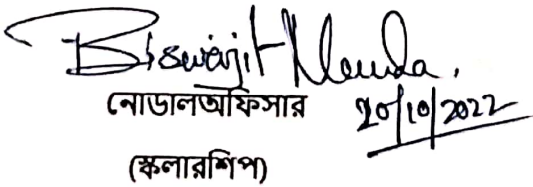 Biswajit Manda.
নোডালঅফিসার 20/10/2022
(স্কলারশিপ)